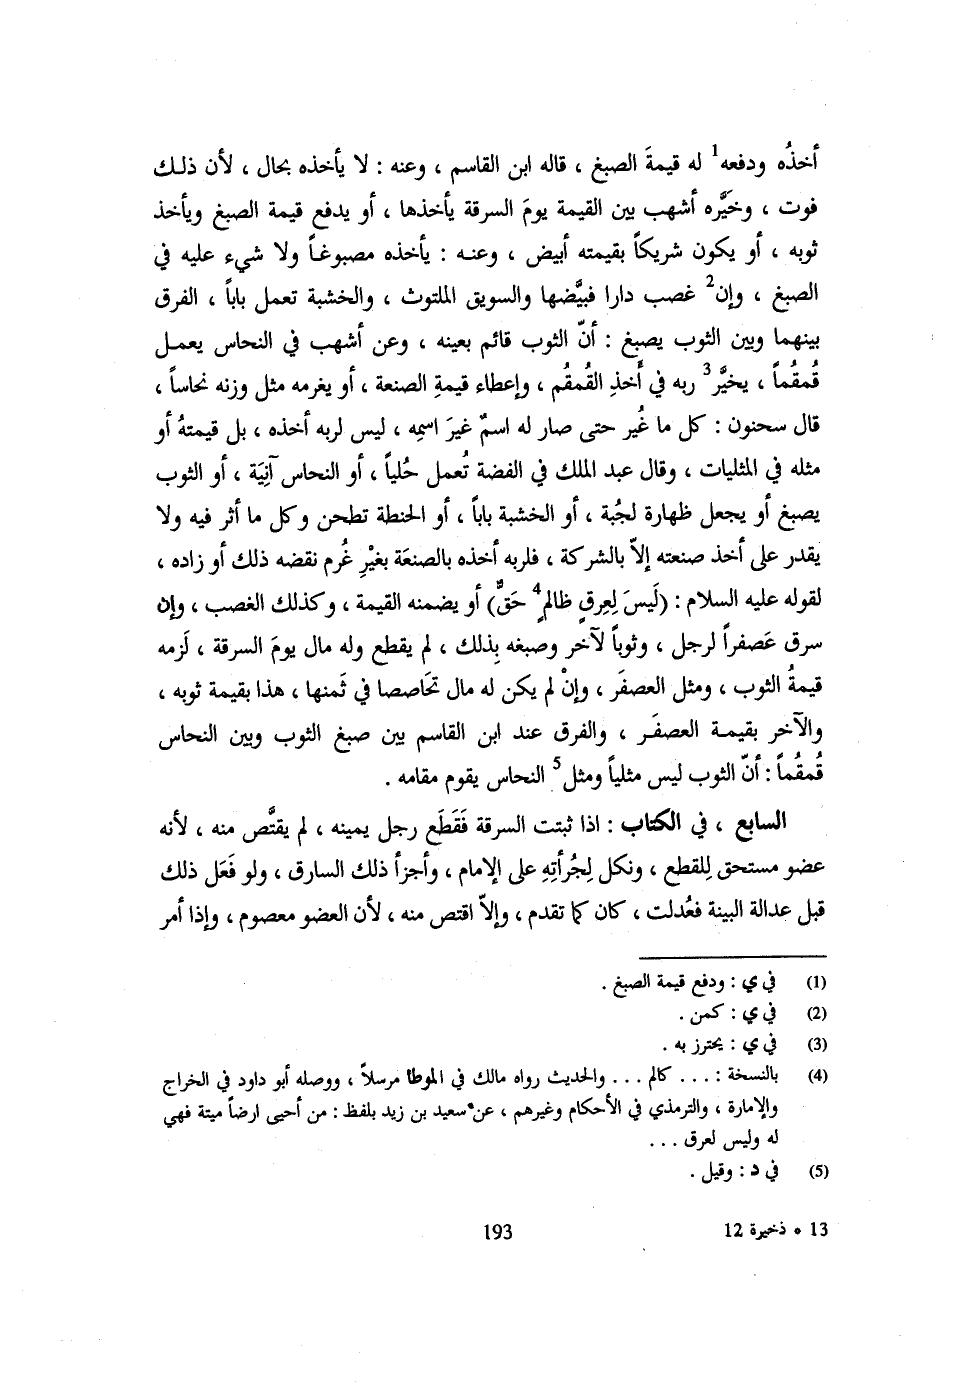 أخذُه ودفعه1 له قيمةَ الصبغ ، قاله ابن القاسم ، وعنه : لا يأخذه بحال ، لأن ذلك
فوت ، وخَيَّره أشهب بين القيمة يومَ السرقة يأخذها ، أو يدفع قيمة الصبغ ويأخذ
ثوبه ، أو يكون شريكاً بقيمته أبيض ، وعنه : يأخذه مصبوغاً ولا شيء عليه في
الصبغ ، وإن2 غصب دارا فبيَّضها والسويق الملتوث ، والخشبة تعمل باباً ، الفرق
بينهما وبين الثوب يصبغ : أنّ الثوب قائم بعينه ، وعن أشهب في النحاس يعمل
قُمقُماً ، يخيَّر3 ربه في أَخذِ القُمقُم ، وإعطاء قيمةِ الصنعة ، أو يغرمه مثل وزنه نحاساً ،
قال سحنون : كل ما غُير حتى صار له اسمٌ غيرَ اسمِه ، ليس لربه أخذه ، بل قيمتهُ أو
مثله في المثليات ، وقال عبد الملك في الفضة تُعمل حُلياً ، أو النحاس آنِيَة ، أو الثوب
يصبغ أو يجعل ظهارة لجُبة ، أو الخشبة باباً ، أو الحنطة تطحن وكل ما أثر فيه ولا
يقدر على أخذ صنعته إلاّ بالشركة ، فلربه أخذه بالصنعَة بغيْرِ غُرم نقضه ذلك أو زاده ،
لقوله عليه السلام : (لَيسَ لِعِرقٍ ظالمٍ4 حَقٌّ) أو يضمنه القيمة ، وكذلك الغصب ، وإن
سرق عَصفراً لرجل ، وثوباً لآخر وصبغه بِذلك ، لم يقطع وله مال يومَ السرقة ، لَزمه
قيمةُ الثوب ، ومثل العصفَر ، وإنْ لم يكن له مال تحَاصصا في ثَمنها ، هذا بقيمة ثوبه ،
والآخر بقيمة العصفَر ، والفرق عند ابن القاسم بين صبغ الثوب وبين النحاس
قُمقُماً : أنّ الثوب ليس مثلياً ومثل5 النحاس يقوم مقامه .
السابع ، في الكتاب : اذا ثبتت السرقة فَقَطَع رجل يمينه ، لم يقتَّص منه ، لأنه
عضو مستحق لِلقطع ، ونكل لِجُرأتِهِ على الإمام ، وأجزأ ذلك السارق ، ولو فَعَل ذلك
قبل عدالة البينة فعُدلت ، كان كما تقدم ، وإلاّ اقتص منه ، لأن العضو معصوم ، وإذا أمر
(1) في ي : ودفع قيمة الصبغ .
(2) في ي : كمن .
(3) في ي : يحترز به .
(4) بالنسخة : . . . كالم . . . والحديث رواه مالك في الموطا مرسلاً ، ووصله أبو داود في الخراج
والإمارة ، والترمذي في الأحكام وغيرهم ، عن سعيد بن زيد بلفظ : من أحيى ارضاً ميتة فهي
له وليس لعرق . . .
(5) في د : وقيل .
13 * ذخيرة 12
193